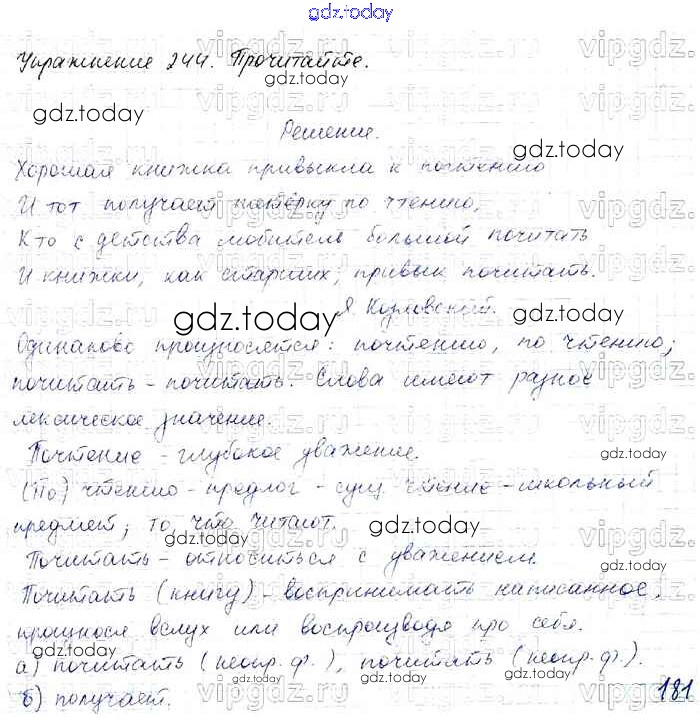 gdz.today
Упражнение 244. Прочитайте.
gdz.today
gdz.today
Решение.
gdz.today
Хорошая книжка привыкла к почтению
И тот получает пятёрку по чтению,
gdz.today
Кто с детства любитель большой почитать
И книжки, как старших, привык почитать.
gdz.today
Я. Козловский.
gdz.today
Одинаково произносятся: почтению, по чтению;
почитать - почитать. Слова имеют разное
лексическое значение.
Почтение - глубокое уважение.
gdz.today
(По) чтению - предлог - сущ. чтение - школьный
предмет; то, что читают.
gdz.today
gdz.today
Почитать - относиться с уважением.
Почитать (книгу) - воспринимать написанное,
произнося вслух или воспроизводя про себя.
а) почитать (неопр.ф.), почитать (неопр.ф.).
б) получает.
181